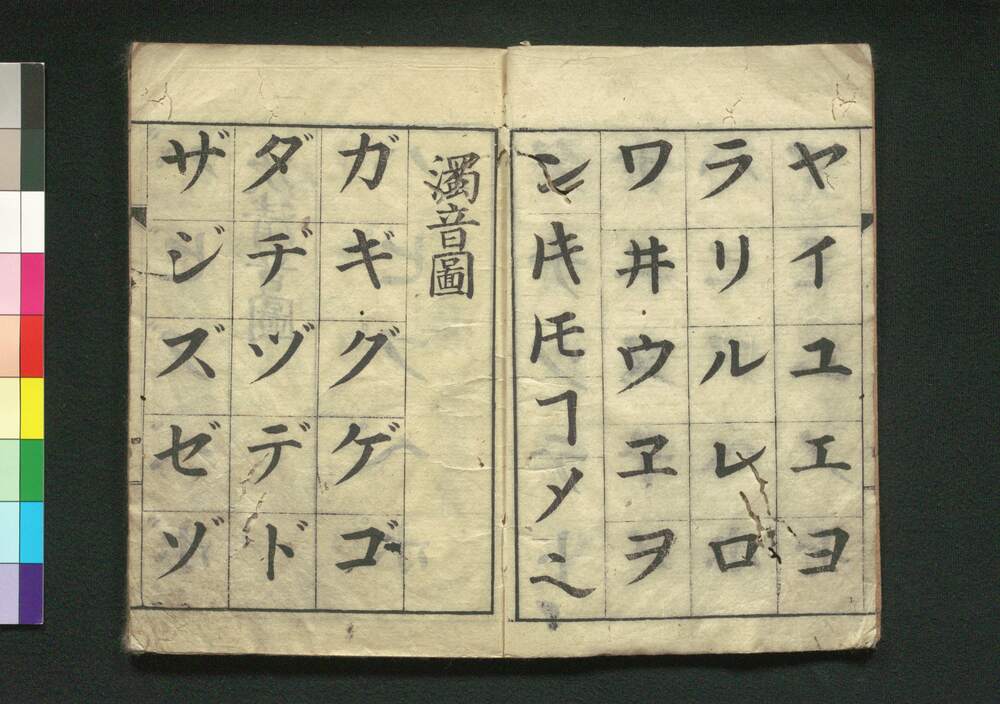 ヤイユエヨ
ラリルレロ
ワ井ウヱヲ
ン𪜈ヿ
濁音圖
ガギグゲゴ
ダヂヅデド
ザジズゼゾ